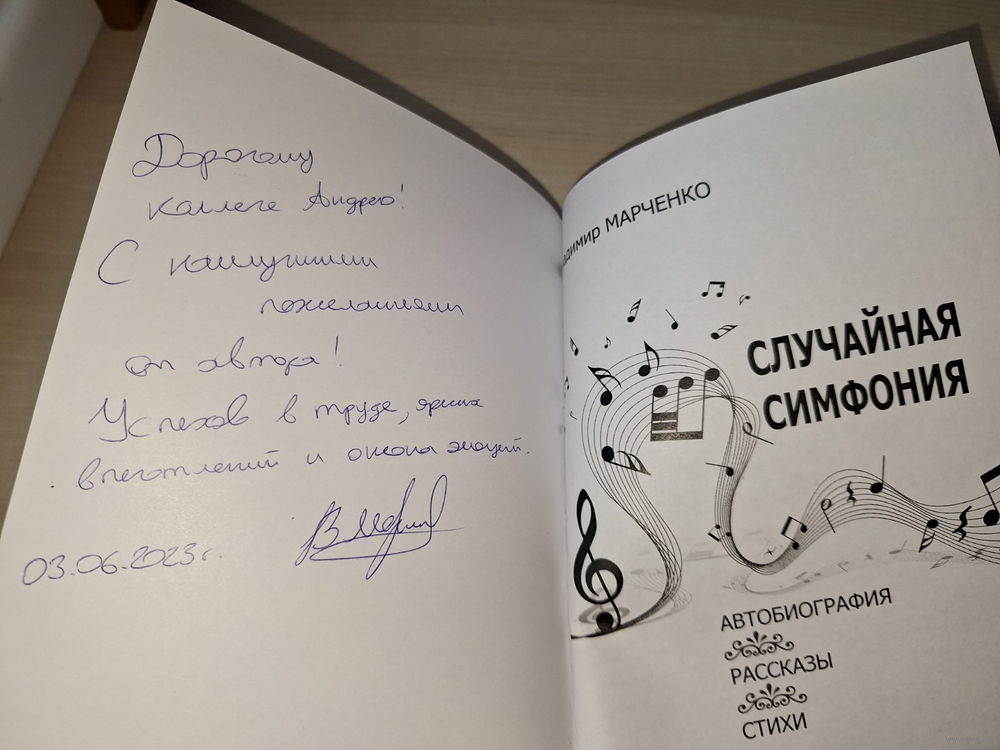 Дорогому
коллеге Андрею!
С наилучшими
пожеланиями
от автора!
Успехов в труде, ярких
впечатлений и океана эмоций.
03.06.2023г.
Владимир МАРЧЕНКО
СЛУЧАЙНАЯ
СИМФОНИЯ
АВТОБИОГРАФИЯ
РАССКАЗЫ
СТИХИ